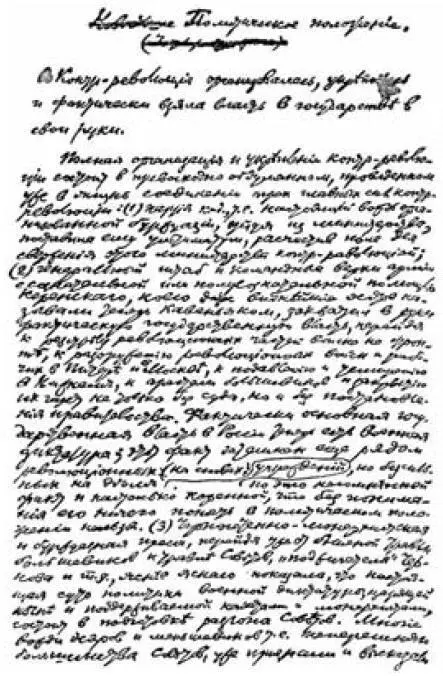 Политическое положение.
Контр-революция организовалась, укрепилась
и фактически взяла власть в государстве в
свои руки.
Полная организация и укрепление контр-револю-
ции состоит в превосходно обдуманном, проведенном
уже в жизнь соединении трех главных сил контр-
революции: (1) партия к.-д., т.е. настоящий вождь орга-
низованной буржуазии, уйдя из министерства,
поставила ему ультиматум, расчистив поле для
свержения этого министерства контр-революцией;
(2) генеральный штаб и командные верхи армии
с сознательной или полусознательной помощью
Керенского, коего даже виднейшие эсеры на-
зывали теперь Кавеньяком, захватил в руки
фактическую государственную власть, перейдя
к расстрелу революционных частей войска на фрон-
те, к разоружению революционных войск и рабо-
чих в Питере и Москве, к подавлению и усмирению
в Нижнем, к арестам большевиков и закрытию
их газет не только без суда, но и без постановле-
ния правительства. Фактически основная госу-
дарственная власть в России теперь есть военная
диктатура; этот факт затемнен еще рядом
революционных (на словах) учреждений, но бессиль-
ных на деле. Но это несомненный
факт и настолько коренной, что без понима-
ния его ничего понять в политическом поло-
жении нельзя. (3) Черносотенно-монархическая
и буржуазная пресса, перейдя уже от бешеной травли
большевиков к травле Советов, «поджигателя» Чер-
нова и т.д., яснее ясного показала, что настоя-
щая суть политики военной диктатуры, царящей
ныне и поддерживаемой кадетами и монархистами,
состоит в подготовке разгона Советов. Многие
вожди эсеров и меньшевиков, т.е. теперешнего
большинства Советов, уже признали и высказали